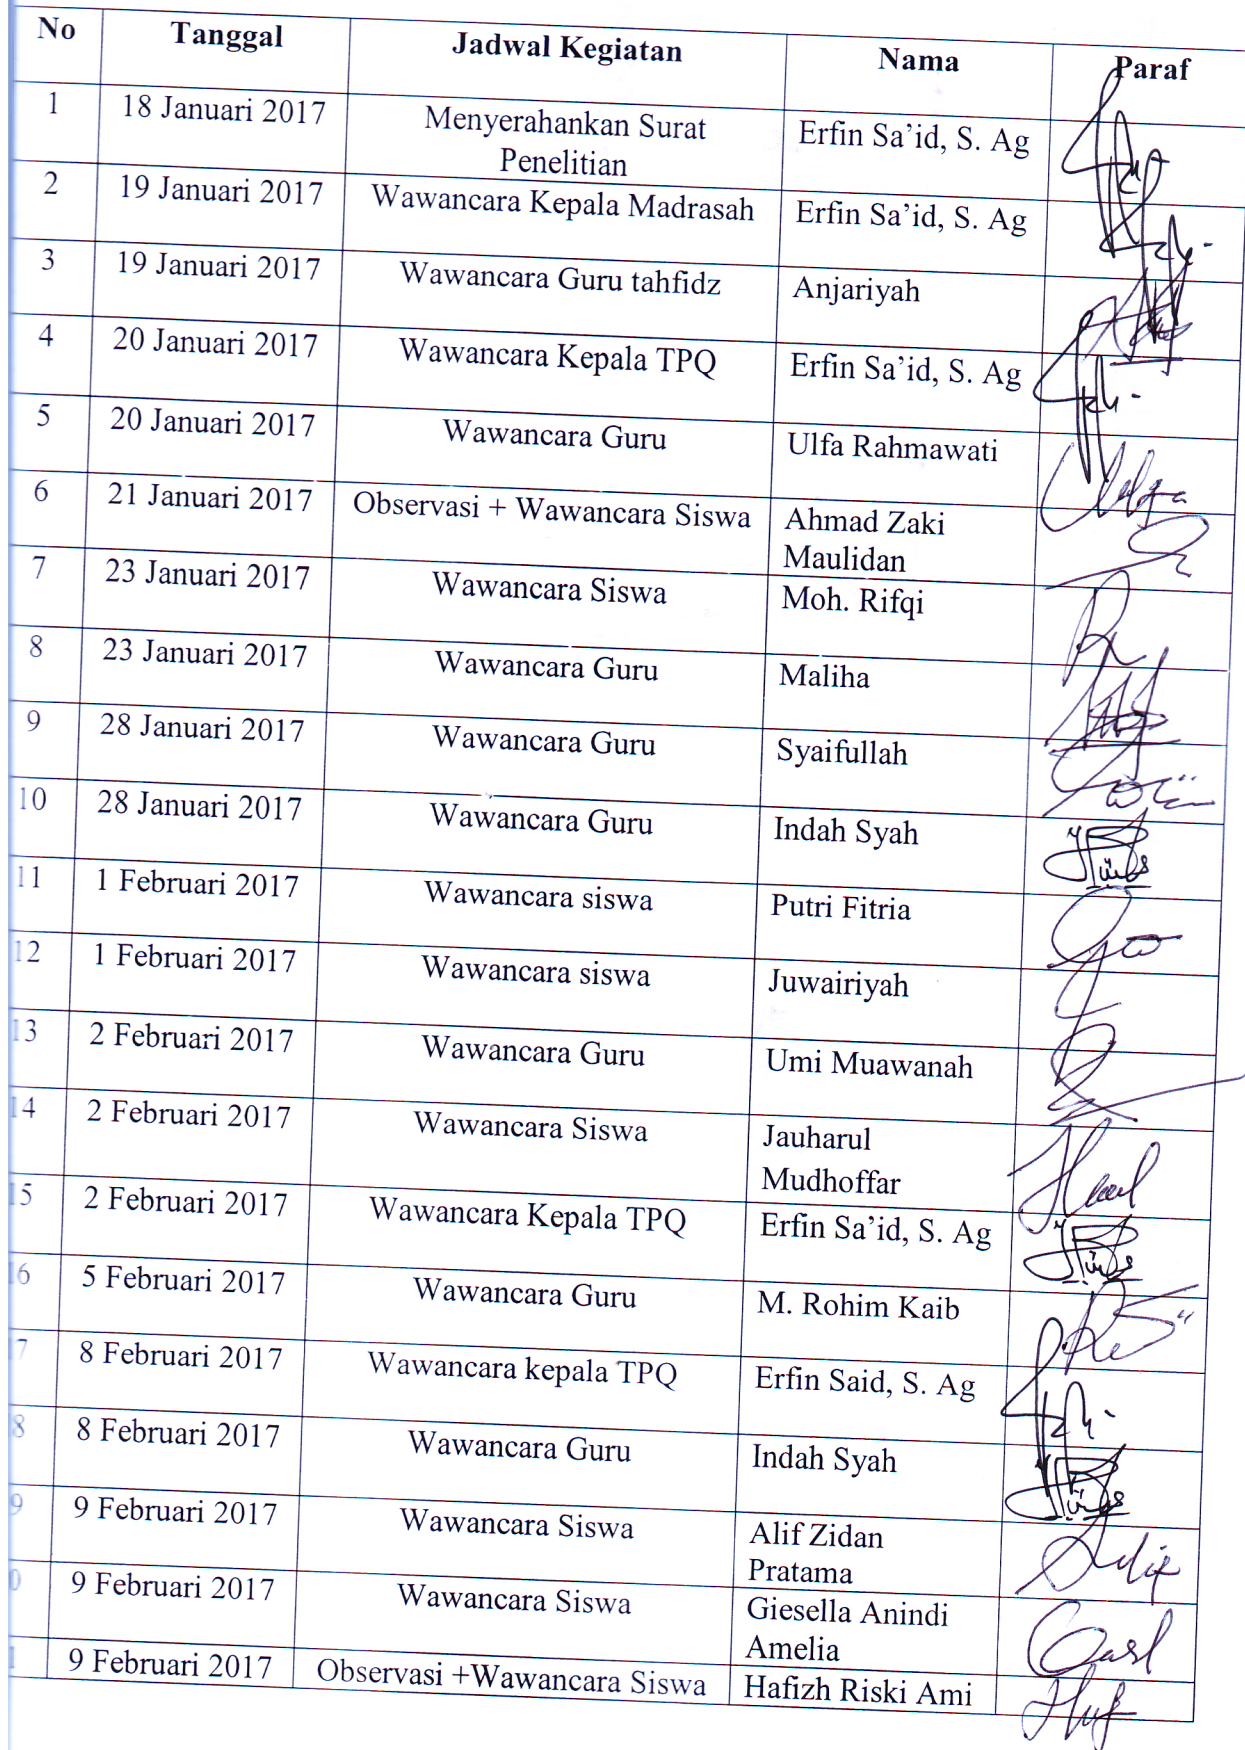 No Tanggal Jadwal Kegiatan Nama Paraf
1 18 Januari 2017 Menyerahankan Surat Erfin Sa’id, S. Ag
Penelitian
2 19 Januari 2017 Wawancara Kepala Madrasah Erfin Sa’id, S. Ag
3 19 Januari 2017 Wawancara Guru tahfidz Anjariyah
4 20 Januari 2017 Wawancara Kepala TPQ Erfin Sa’id, S. Ag
5 20 Januari 2017 Wawancara Guru Ulfa Rahmawati
6 21 Januari 2017 Observasi + Wawancara Siswa Ahmad Zaki
Maulidan
7 23 Januari 2017 Wawancara Siswa Moh. Rifqi
8 23 Januari 2017 Wawancara Guru Maliha
9 28 Januari 2017 Wawancara Guru Syaifullah
10 28 Januari 2017 Wawancara Guru Indah Syah
11 1 Februari 2017 Wawancara siswa Putri Fitria
12 1 Februari 2017 Wawancara siswa Juwairiyah
13 2 Februari 2017 Wawancara Guru Umi Muawanah
14 2 Februari 2017 Wawancara Siswa Jauharul
Mudhoffar
15 2 Februari 2017 Wawancara Kepala TPQ Erfin Sa’id, S. Ag
16 5 Februari 2017 Wawancara Guru M. Rohim Kaib
7 8 Februari 2017 Wawancara kepala TPQ Erfin Said, S. Ag
8 8 Februari 2017 Wawancara Guru Indah Syah
9 9 Februari 2017 Wawancara Siswa Alif Zidan
Pratama
0 9 Februari 2017 Wawancara Siswa Giesella Anindi
Amelia
1 9 Februari 2017 Observasi +Wawancara Siswa Hafizh Riski Ami